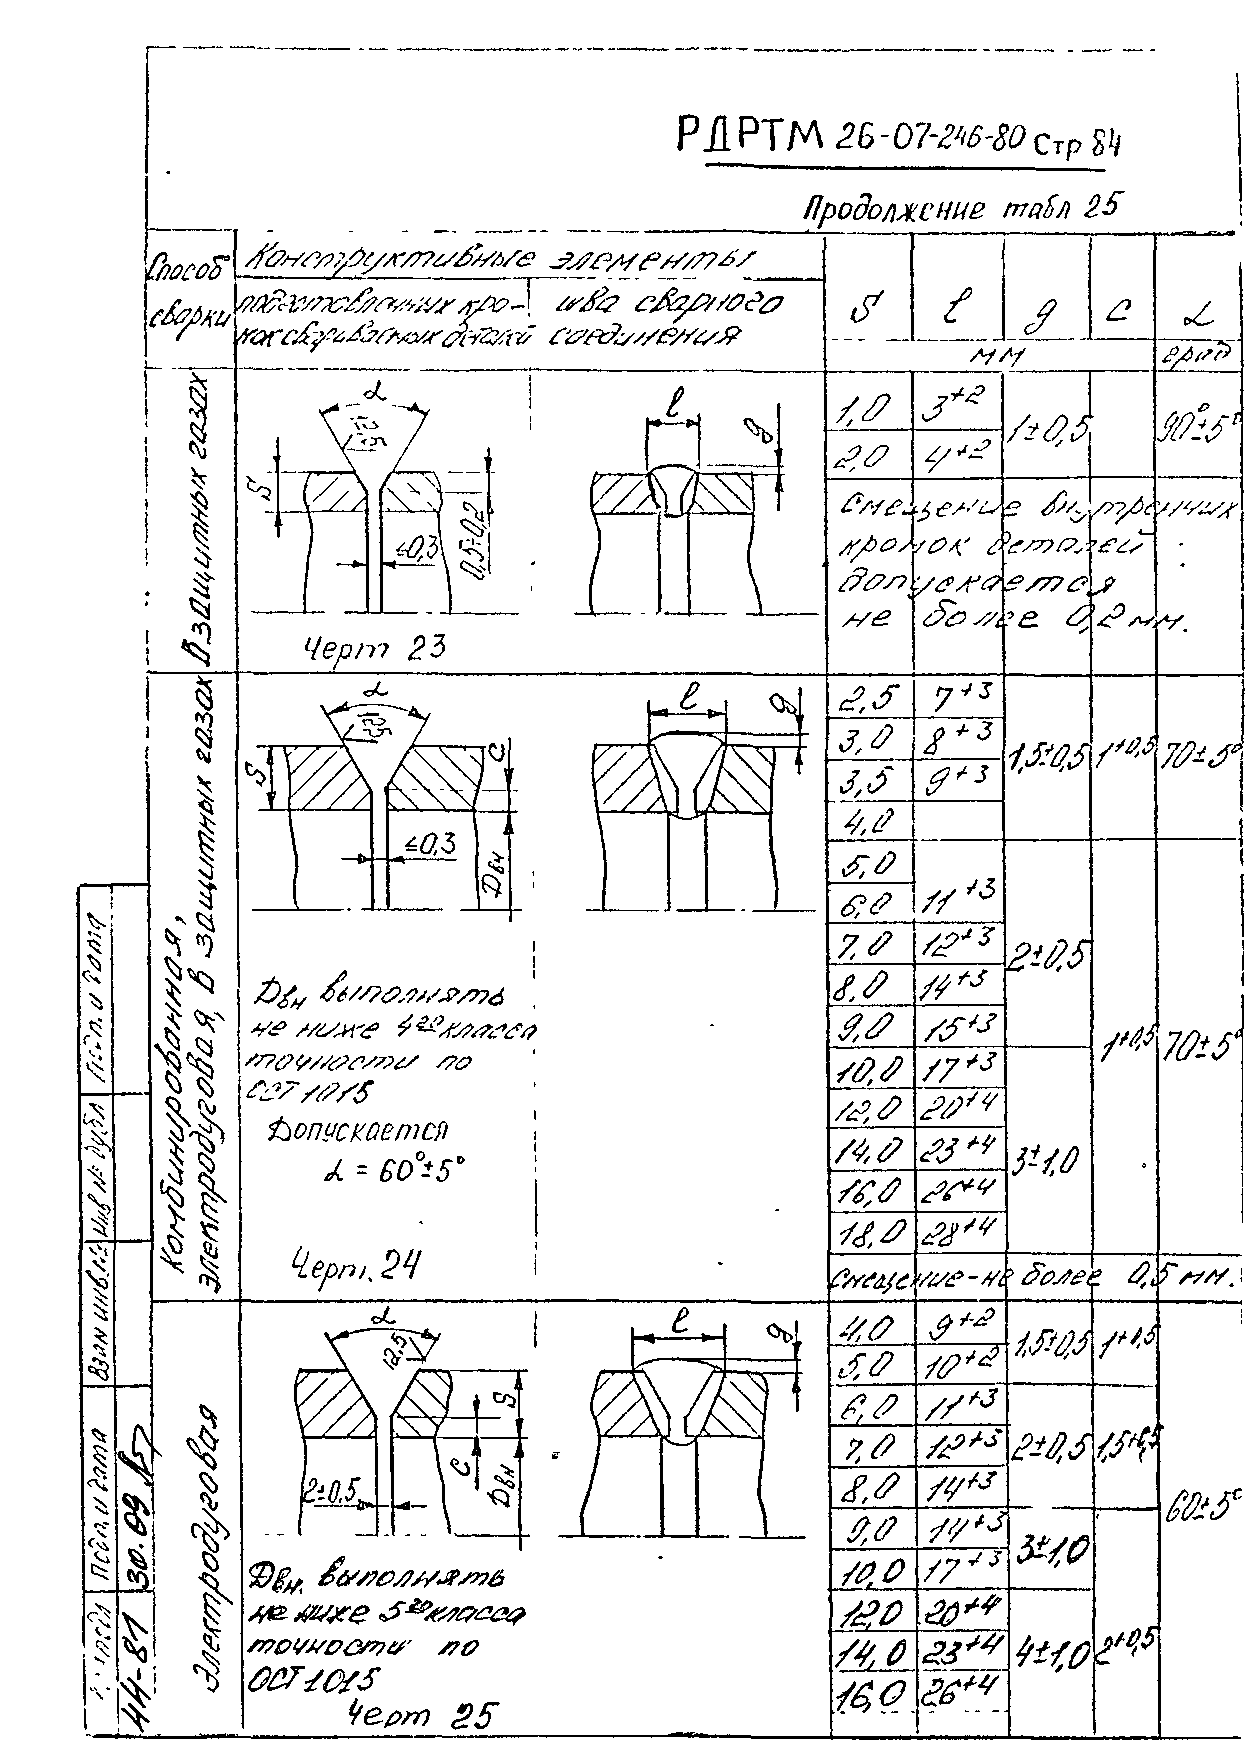 РДРТМ 26-07-246-80 Стр 84
Продолжение табл 25
Способ сварки
Конструктивные элементы
подготовленных кро-
мок свариваемых деталей
шва сварного
соединения
S l g c α
мм град
В защитных газах
α
12,5
S
≤0,3
0,5±0,2
l
g
Черт 23
1,0 3⁺²
2,0 4⁺²
1±0,5
90°±5°
Смещение внутренних
кромок деталей
допускается
не более 0,2 мм.
Комбинированная,
электродуговая, в защитных газах
α
12,5
S
c
≤0,3
Dвн
l
g
Dвн выполнять
не ниже 4го класса
точности по
ОСТ 1015
Допускается
α = 60°±5°
Черт. 24
2,5 7⁺³
3,0 8⁺³
3,5 9⁺³
4,0
1,5±0,5 1⁺⁰,⁵ 70±5°
5,0
6,0 11⁺³
7,0 12⁺³
8,0 14⁺³
9,0 15⁺³
2±0,5
10,0 17⁺³
12,0 20⁺⁴
14,0 23⁺⁴
16,0 26⁺⁴
18,0 28⁺⁴
3±1,0
1⁺⁰,⁵ 70±5°
Смещение-не более 0,5 мм.
Электродуговая
α
12,5
S
c
2±0,5
Dвн
l
g
Dвн. выполнять
не ниже 5го класса
точности по
ОСТ 1015
Черт 25
4,0 9⁺²
5,0 10⁺²
1,5±0,5 1⁺⁰,⁵
6,0 11⁺³
7,0 12⁺³
8,0 14⁺³
2±0,5 1,5⁺⁰,⁵
9,0 14⁺³
10,0 17⁺³
3±1,0
12,0 20⁺⁴
14,0 23⁺⁴
16,0 26⁺⁴
4±1,0 2⁺⁰,⁵
60±5°
Подп. и дата
Инв № дубл
Взам инв. №
Подп. и дата
30.09
подл
44-81